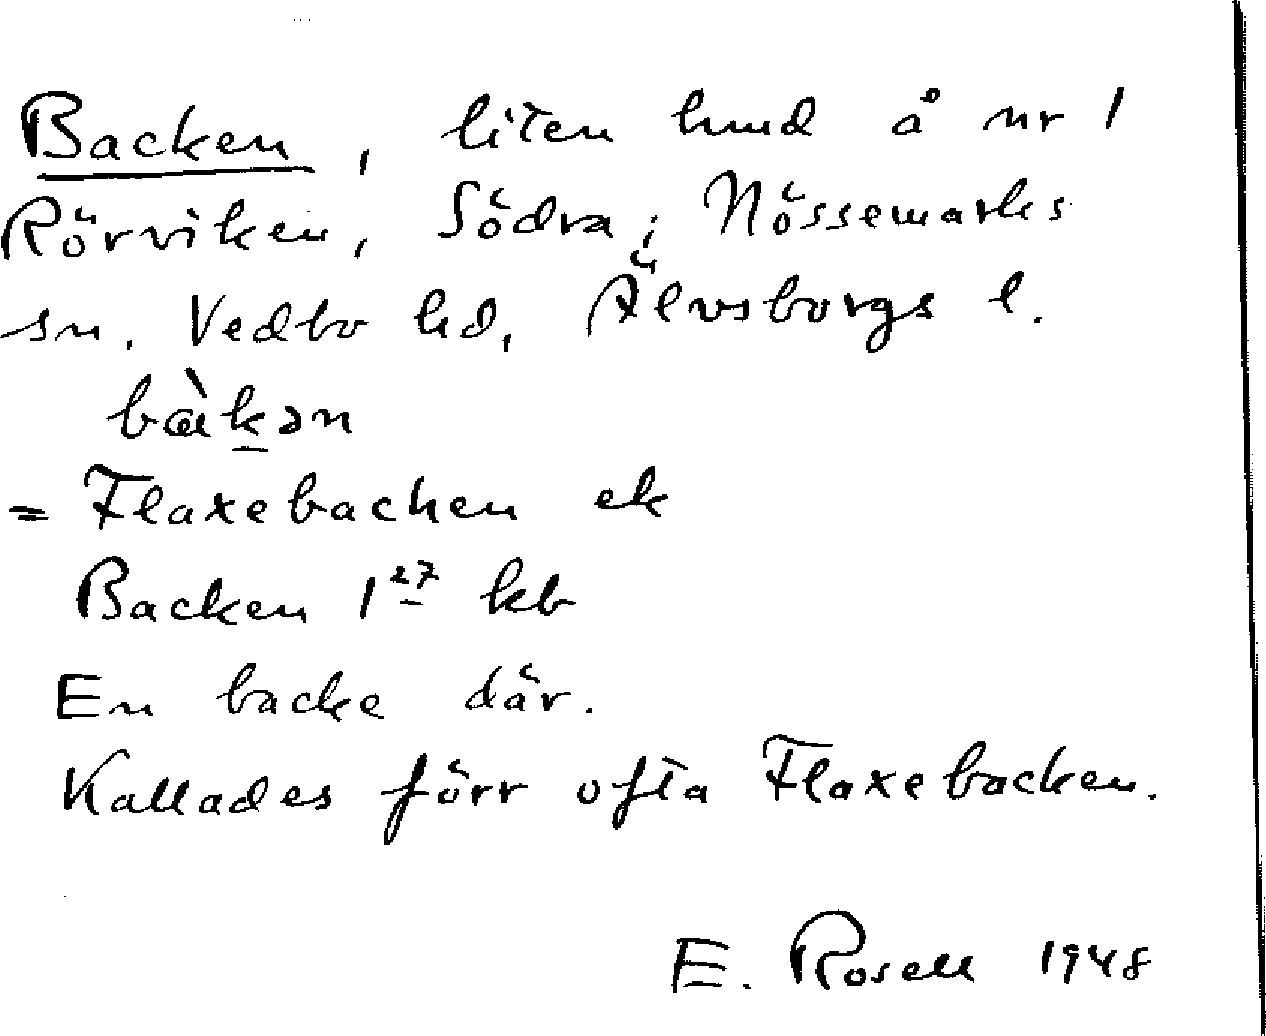 Backen, liten lmd å nr 1
Rörviken, Södra; Nössemarks
sn. Vedbo hd, Älvsborgs l.
bàkən
= Flaxebacken ek
Backen 1²⁷ kb
En backe där.
Kallades förr ofta Flaxebacken.
E. Rosell 1948